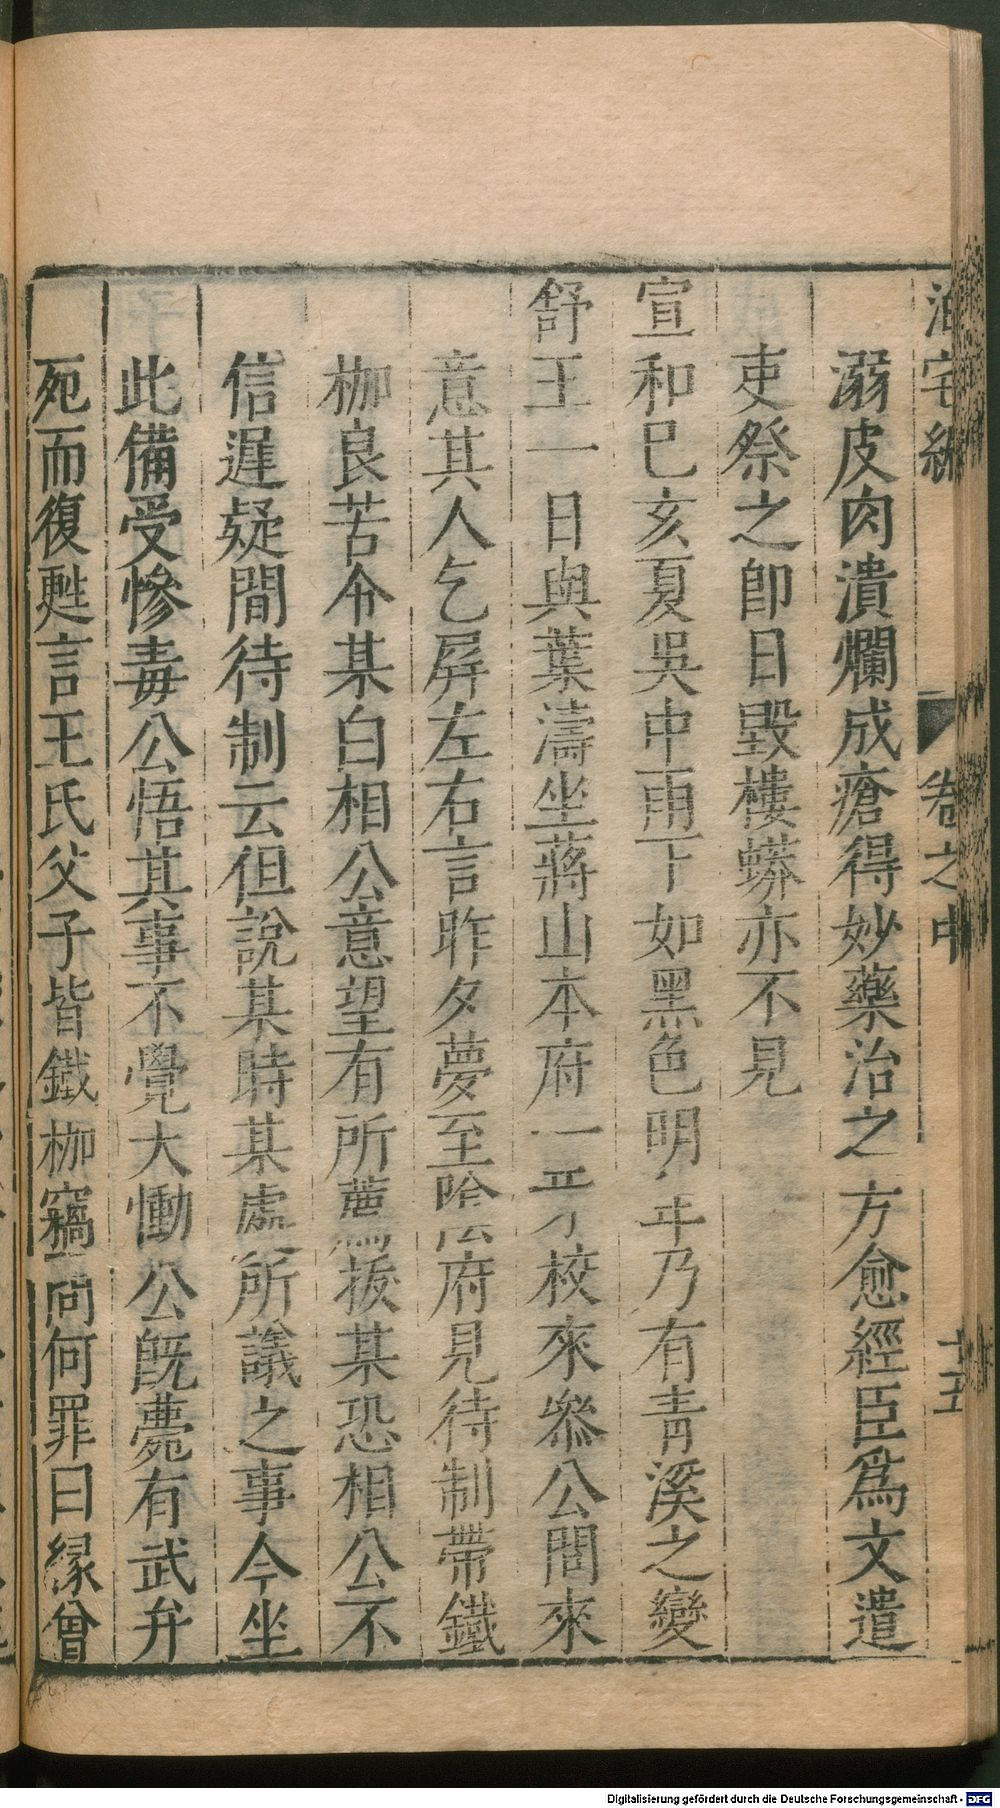 泊宅編 卷之中 十五
溺皮肉潰爛成瘡得妙藥治之一方愈經臣爲文遣
吏祭之卽日毀樓蟒亦不見
宣和巳亥夏吳中雨下如黑色明年乃有青溪之變
舒王一日與葉濤坐蔣山本府一牙校來叅公問來
意其人乞屏左右言昨夕夢至陰府見待制帶鐵
枷良苦令某白相公意望有所薦拔某恐相公不
信遲疑間待制云但說某時某處所議之事今坐
此備受慘毒公悟其事不覺大慟公旣薨有武弁
死而復甦言王氏父子皆鐵枷竊問何罪曰縁曾
Digitalisierung gefördert durch die Deutsche Forschungsgemeinschaft - DFG